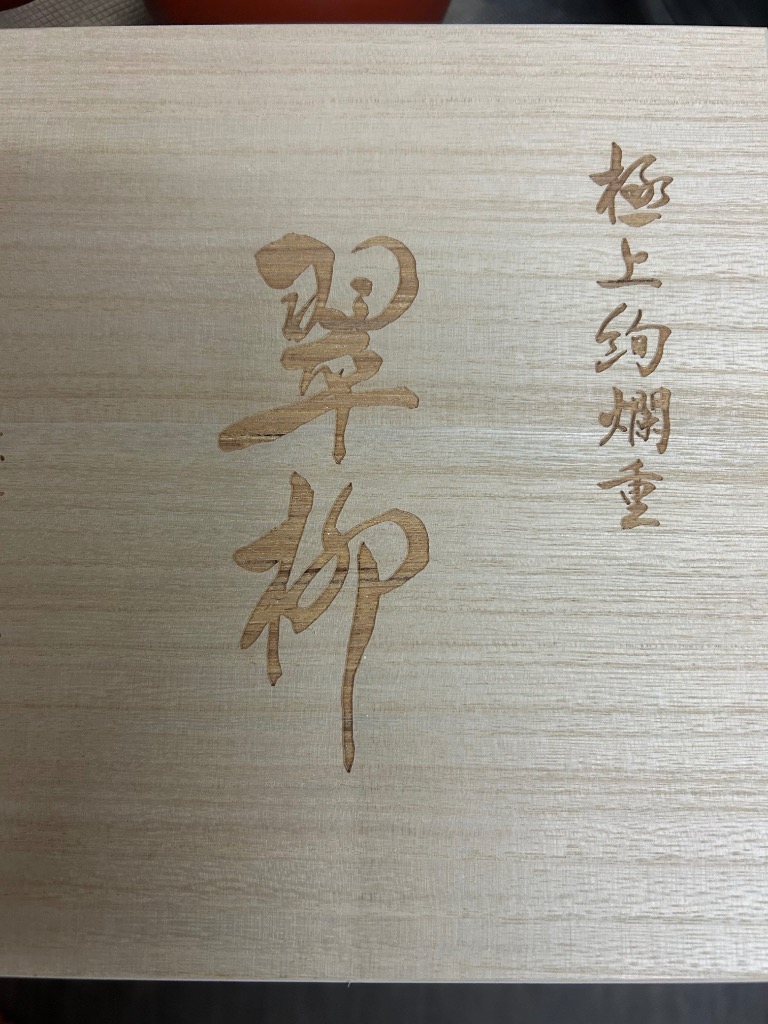 極上絢爛重
翠柳